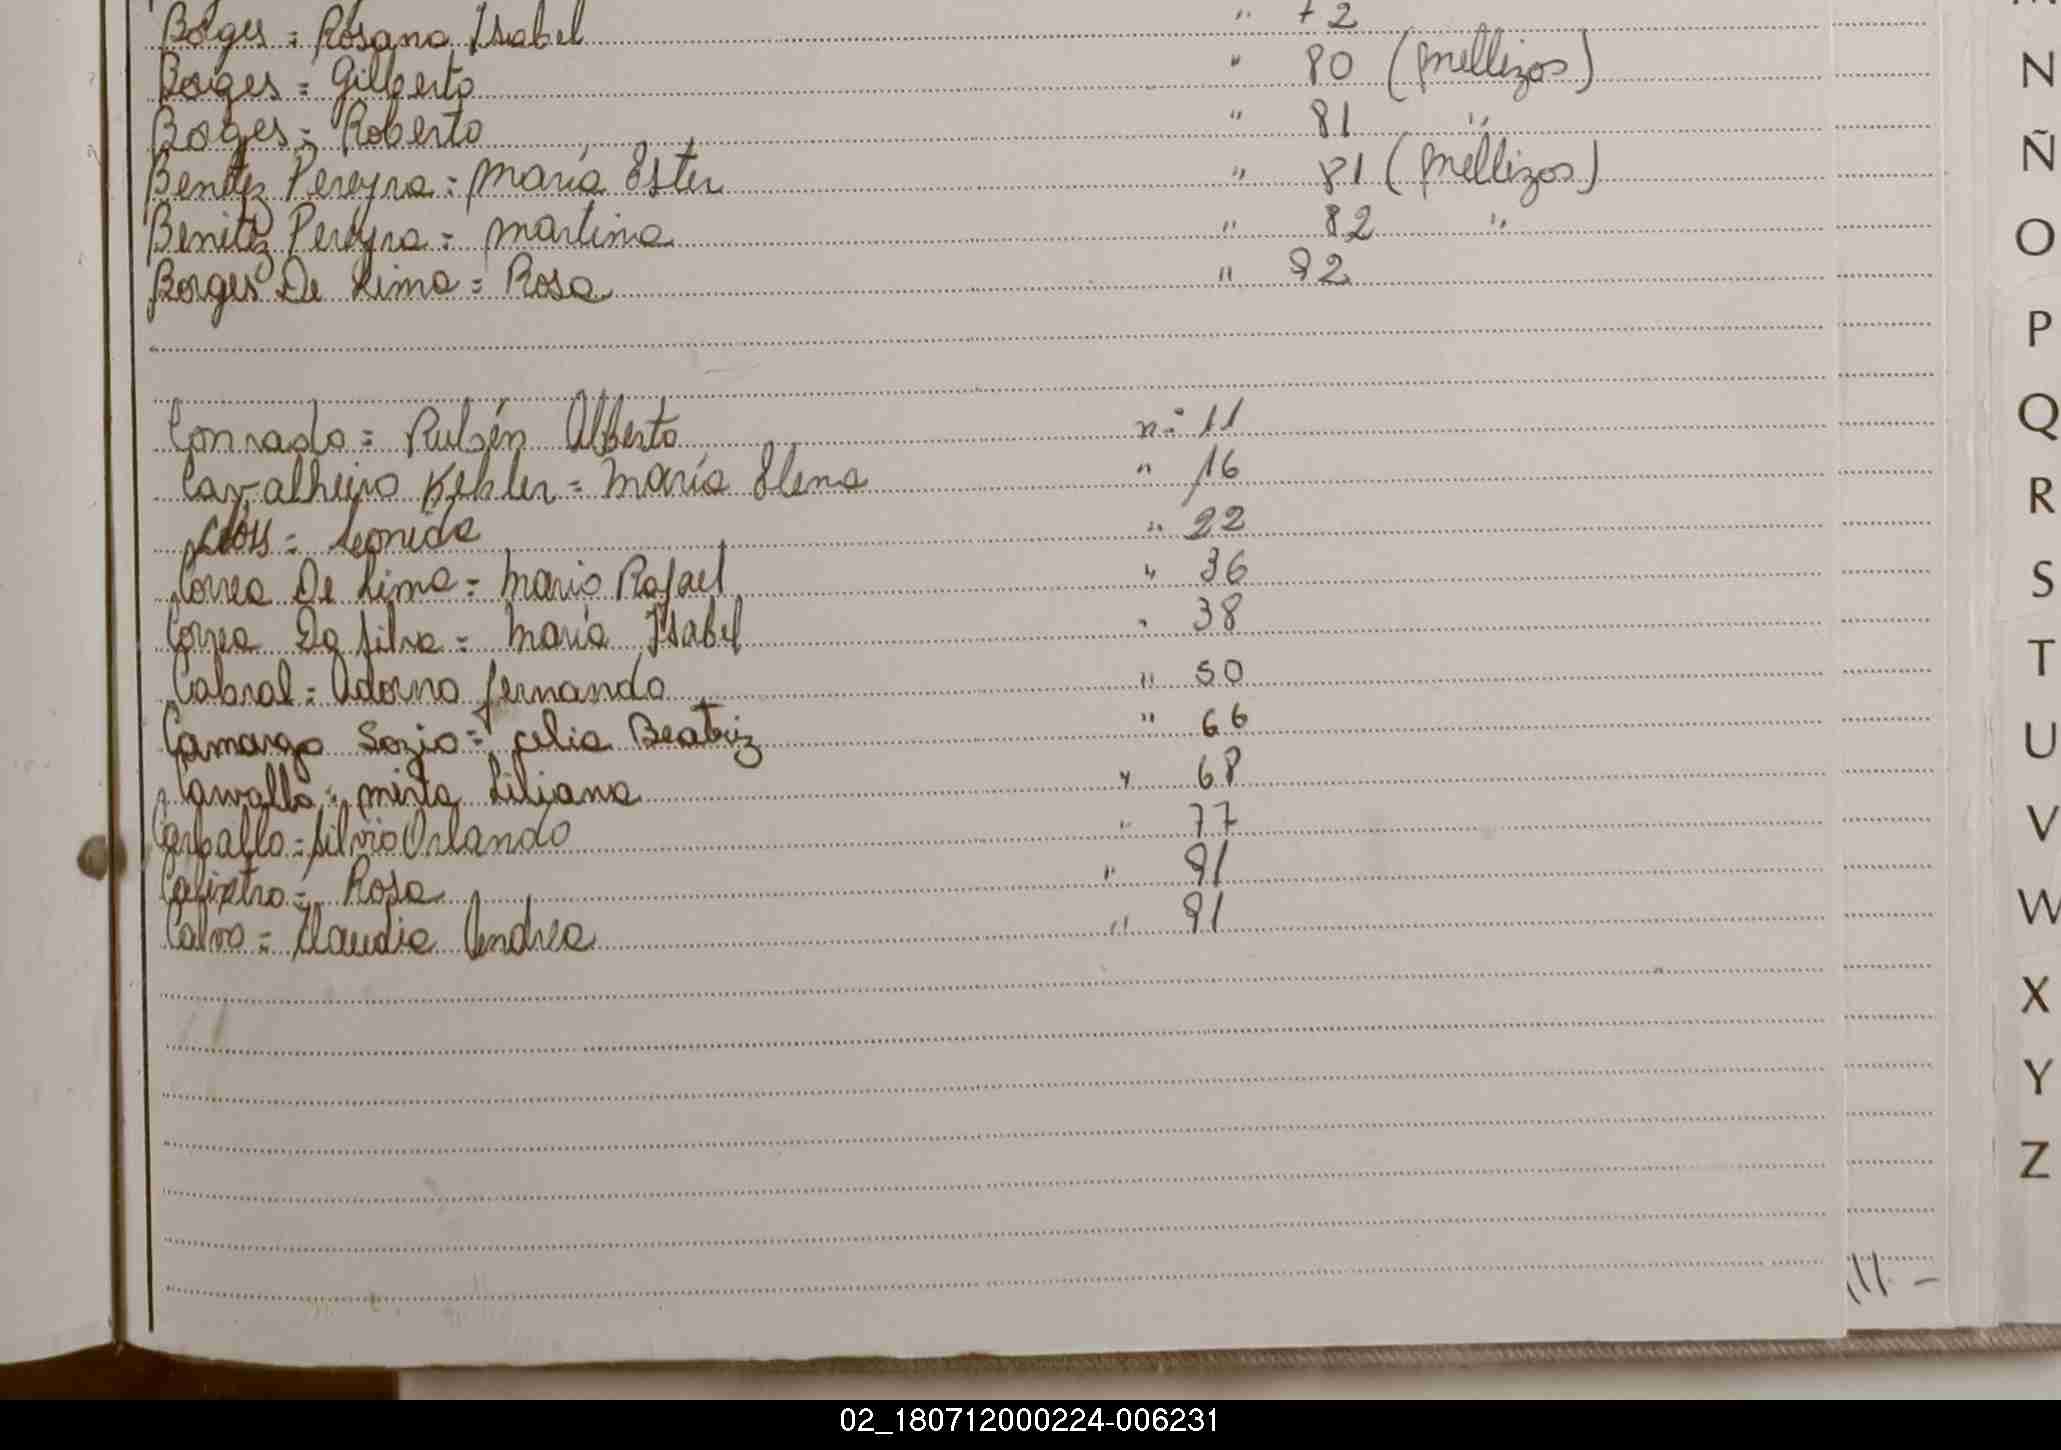 Borges = Rosana Isabel " 72
Borges = Gilberto " 80 (mellizos)
Borges = Roberto " 81 "
Benitez Pereyra = María Ester " 81 (mellizos)
Benitez Pereyra = Martina " 82 "
Borges De Lima = Rosa " 92
Conrado = Rubén Alberto n° 11
Cavalheiro Kebler = María Elena " 16
= Leonida " 22
Correa De Lima = Mario Rafael " 36
Correa Da Silva = María Isabel " 38
Cabral = Adorno Fernando " 50
Camargo Sozio = Celia Beatriz " 66
Carvallo = Mirta Liliana " 68
Carballo = Silvio Orlando " 77
Calixtro = Rosa " 91
Calvo = Claudia Andrea " 91
N
Ñ
O
P
Q
R
S
T
U
V
W
X
Y
Z
02_180712000224-006231